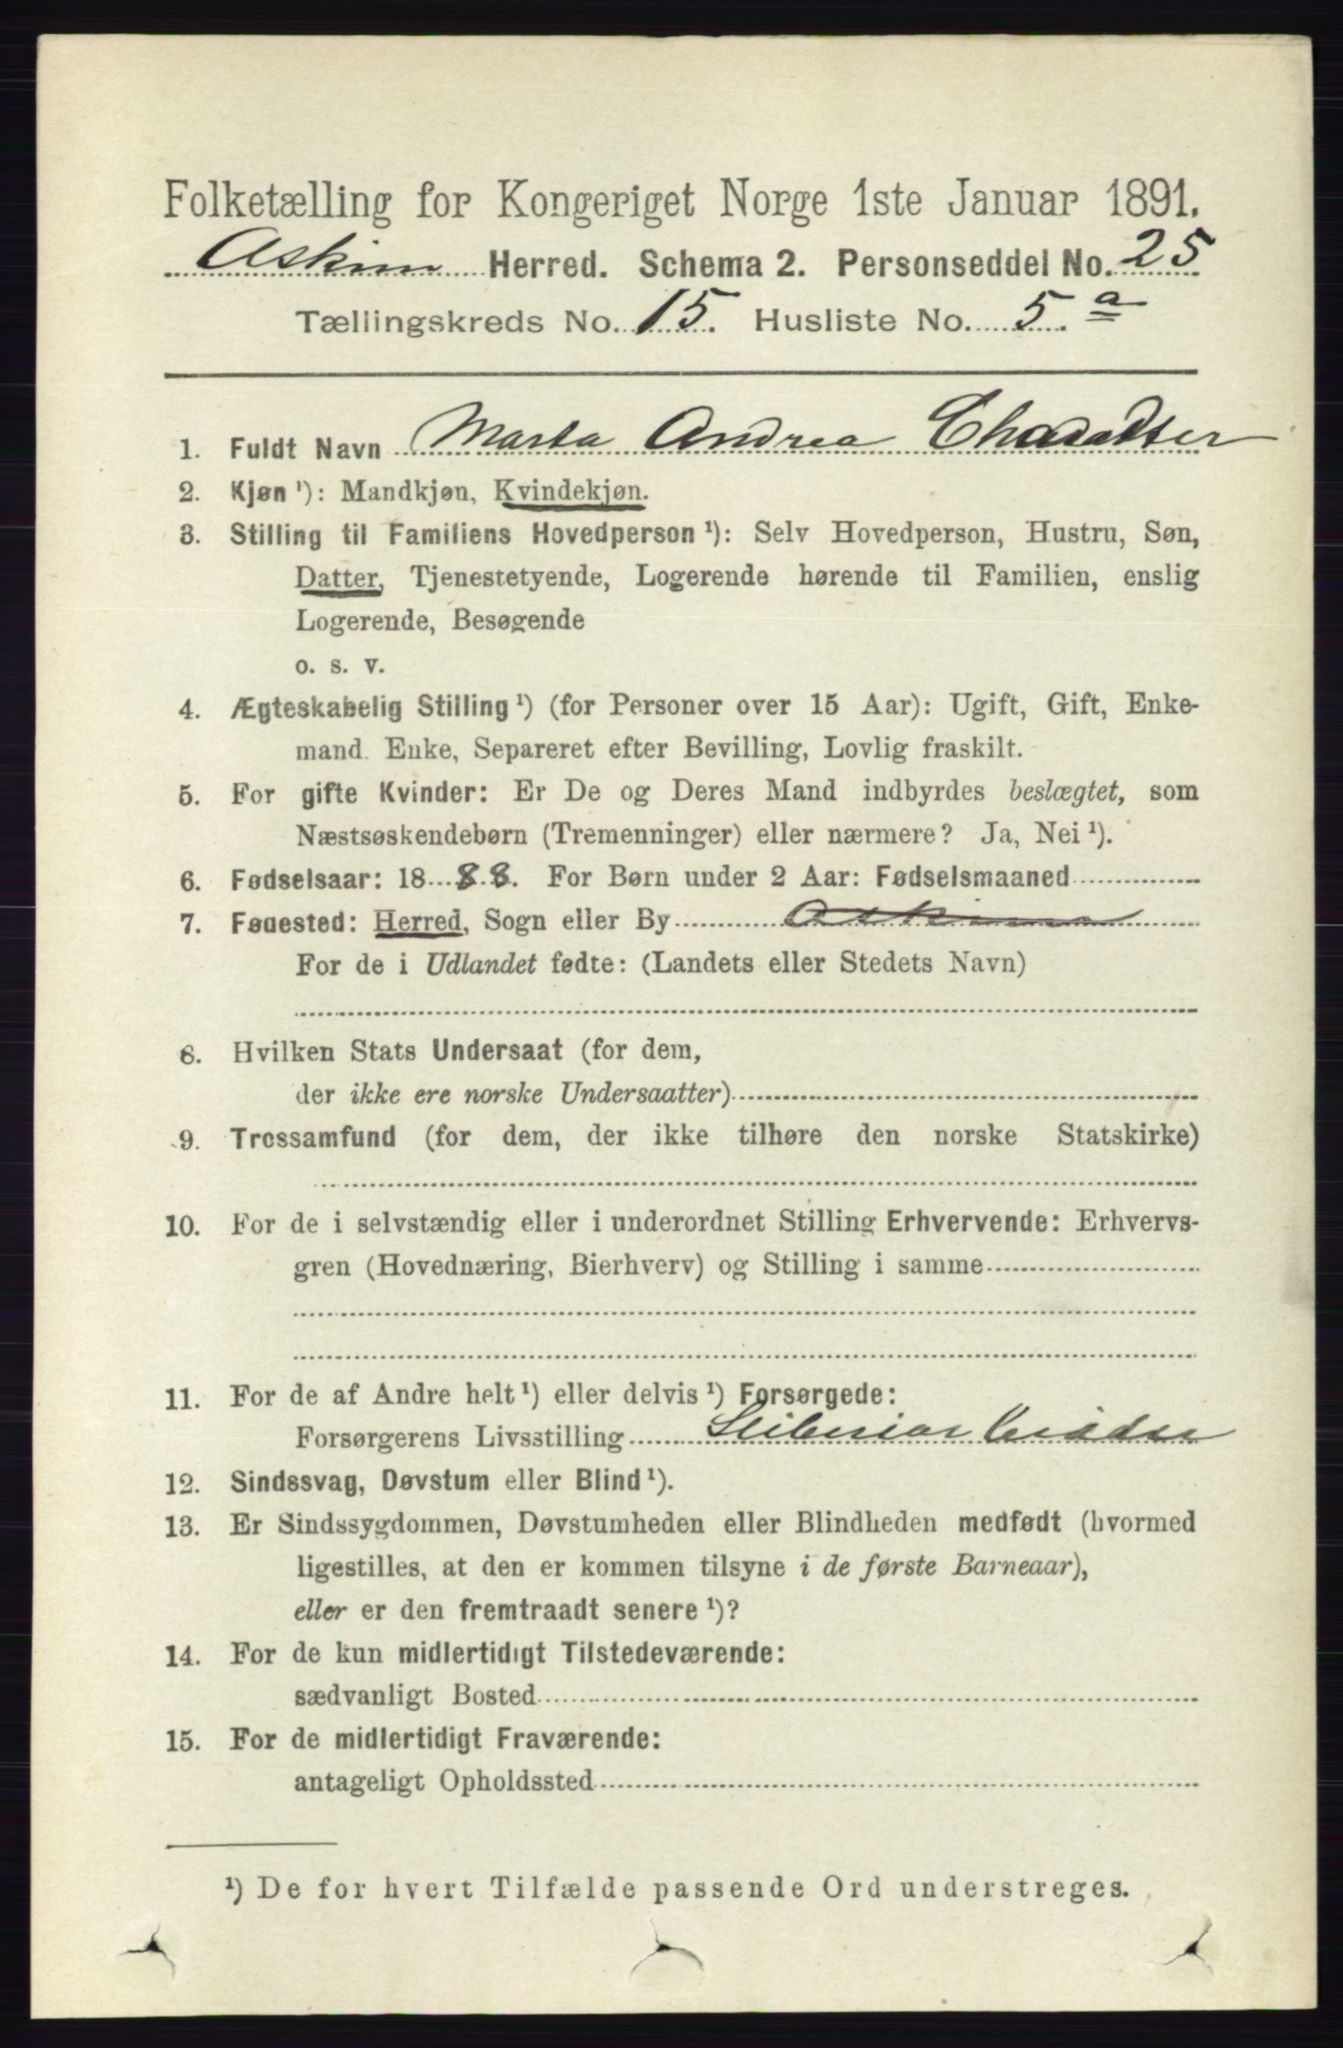 Folketælling for Kongeriget Norge 1ste Januar 1891.
Askim Herred. Schema 2. Personseddel No. 25
Tællingskreds No. 15. Husliste No. 5. a
1. Fuldt Navn Marta Andrea
2. Kjøn ¹): Mandkjøn, Kvindekjøn.
3. Stilling til Familiens Hovedperson ¹): Selv Hovedperson, Hustru, Søn,
Datter, Tjenestetyende, Logerende hørende til Familien, enslig
Logerende, Besøgende
o. s. v.
4. Ægteskabelig Stilling ¹) (for Personer over 15 Aar): Ugift, Gift, Enke-
mand. Enke, Separeret efter Bevilling, Lovlig fraskilt.
5. For gifte Kvinder: Er De og Deres Mand indbyrdes beslægtet, som
Næstsøskendebørn (Tremenninger) eller nærmere? Ja, Nei ¹).
6. Fødselsaar: 18 88. For Børn under 2 Aar: Fødselsmaaned
7. Fødested: Herred, Sogn eller By Askim
For de i Udlandet fødte: (Landets eller Stedets Navn)
8. Hvilken Stats Undersaat (for dem,
der ikke ere norske Undersaatter)
9. Trossamfund (for dem, der ikke tilhøre den norske Statskirke)
10. For de i selvstændig eller i underordnet Stilling Erhvervende: Erhvervs-
gren (Hovednæring, Bierhverv) og Stilling i samme
11. For de af Andre helt ¹) eller delvis ¹) Forsørgede:
Forsørgerens Livsstilling
12. Sindssvag, Døvstum eller Blind ¹).
13. Er Sindssygdommen, Døvstumheden eller Blindheden medfødt (hvormed
ligestilles, at den er kommen tilsyne i de første Barneaar),
eller er den fremtraadt senere ¹)?
14. For de kun midlertidigt Tilstedeværende:
sædvanligt Bosted
15. For de midlertidigt Fraværende:
antageligt Opholdssted
¹) De for hvert Tilfælde passende Ord understreges.